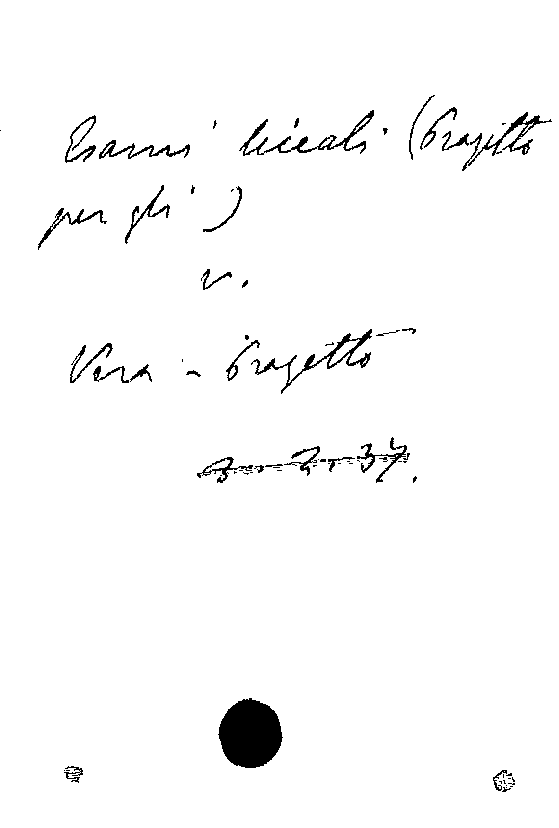 Esami liceali (Progetto
per gli)
v.
Vera - Progetto
3. 2. 37.